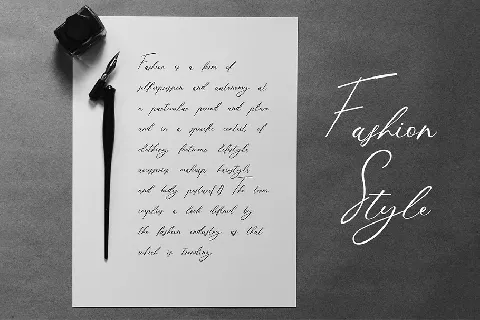 Fashion is a form of
self-expression and autonomy at
a particular period and place
and in a specific context, of
clothing, footwear, lifestyle,
accessories, makeup, hairstyle,
and body posture[1]. The term
implies a look defined by
the fashion industry as that
which is trending
Fashion
Style